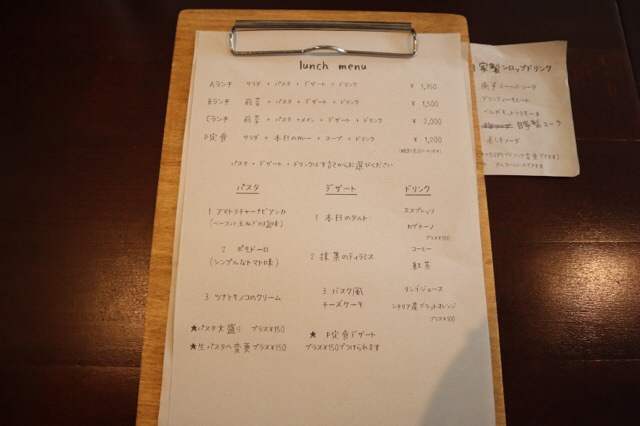 lunch menu
Aランチ サラダ + パスタ + デザート + ドリンク ¥ 1,150
Bランチ 前菜 + パスタ + デザート + ドリンク ¥ 1,500
Cランチ 前菜 + パスタ + メイン + デザート + ドリンク ¥ 2,000
P定食 サラダ + 本日のカレー + スープ + ドリンク ¥ 1,200
パスタ + デザート + ドリンクは下記からお選びください
パスタ デザート ドリンク
1 アマトリチャーナビアンカ
(ベーコンと玉ねぎの塩味)
2 ポモドーロ
(シンプルなトマト味)
3 ツナとキノコのクリーム
★パスタ大盛り プラス¥150
★生パスタへ変更プラス¥150
1 本日のタルト
2 抹茶のティラミス
3 バスク風
チーズケーキ
★ P定食デザート
プラス¥150でつけられます
エスプレッソ
カプチーノ
プラス¥100
コーヒー
紅茶
リンゴジュース
シチリア産ブラッドオレンジ
プラス¥100
家製シロップドリンク
自家製コーラ
赤しそソーダ